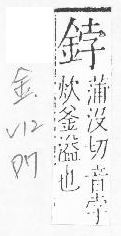 鋍
蒲沒切音孛
炊釜溢也
金
V12